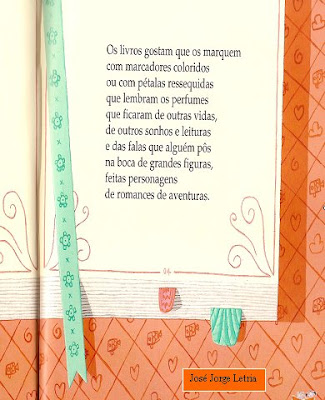 Os livros gostam que os marquem
com marcadores coloridos
ou com pétalas ressequidas
que lembram os perfumes
que ficaram de outras vidas,
de outros sonhos e leituras
e das falas que alguém pôs
na boca de grandes figuras,
feitas personagens
de romances de aventuras.
José Jorge Letria